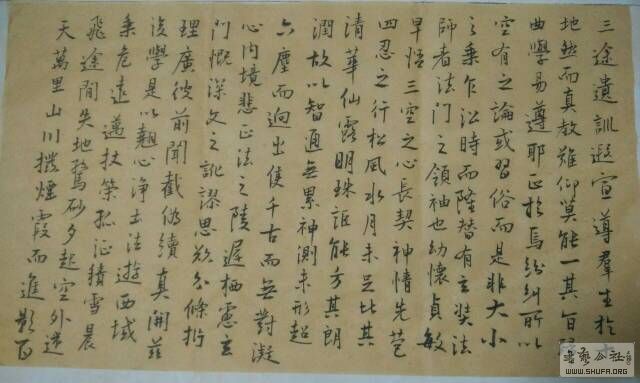 三途遺訓遐宣導羣生於
地然而真教難仰莫能一其旨
曲學易遵耶正於焉紛糾所以
空有之論或習俗而是非大小
之乘乍沿時而隆替有玄奘法
師者法門之領袖也幼懷貞敏
早悟三空之心長契神情先苞
四忍之行松風水月未足比其
清華仙露明珠詎能方其朗
潤故以智通無累神測未形超
六塵而迥出隻千古而無對凝
心內境悲正法之陵遲栖慮玄
門慨深文之訛謬思欲分條析
理廣彼前聞截偽續真開茲
後學是以翹心淨土法遊西域
乘危遠邁杖策孤征積雪晨
飛途間失地驚砂夕起空外迷
天萬里山川撥煙霞而進影百
WWW.SHUFA.ORG